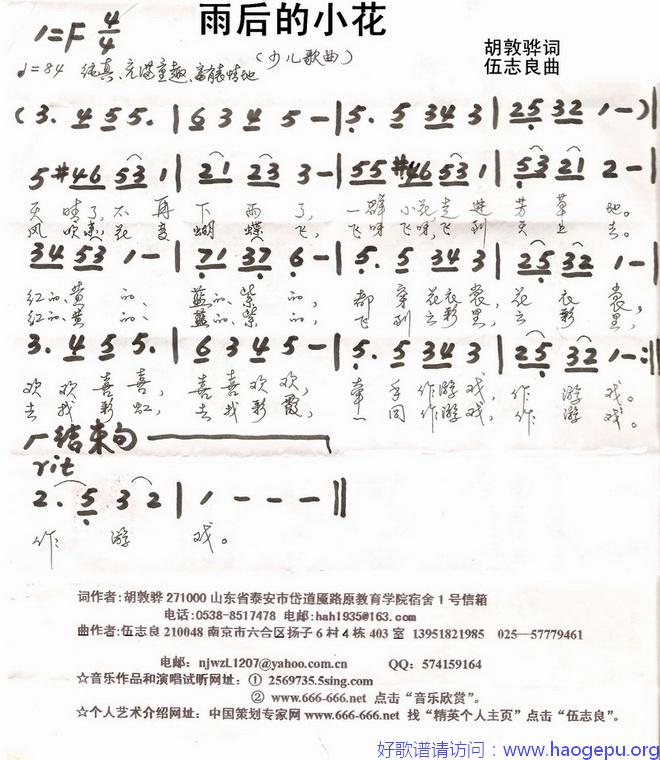 雨后的小花
1=F 4/4
(少儿歌曲)
胡敦骅词
♩=84 纯真、充满童趣、富表情地
伍志良曲
(3. 4 5 5. | 6 3 4 5 – | 5. 5 3 4 3 | 2 5 3 2 1 – )|
5 #4 6 5 3 1 | 2 1 2 3 3 – | 5 5 #4 6 5 3 1 | 5 3 2 1 2 – |
天晴了,不再下雨了,一群小花走进芳草地。
风吹来,花变蝴蝶飞,飞呀飞呀,飞到天上去。
3 4 5 3 1 – | 7 1 3 7 6 – | 5. 5 3 4 3 | 2 5 3 2 1 – |
红的、黄的、蓝的、紫的,都穿花衣裳,花衣裳,
红的、黄的、蓝的、紫的,飞到云彩里,云彩里,
3. 4 5 5. | 6 3 4 5 – | 5. 5 3 4 3 | 2 5 3 2 1 – :||
欢欢喜喜,喜喜欢欢,牵手作游戏,作游戏。
去找彩虹,去找彩霞,一同作游戏,作游戏。
结束句
rit
2. 5 3 2 | 1 – – – ||
作游戏。
词作者:胡敦骅 271000 山东省泰安市岱道庵路原教育学院宿舍 1 号信箱
电话:0538-8517478 电邮:hah1935@163.com
曲作者:伍志良 210048 南京市六合区扬子 6 村 4 栋 403 室 13951821985 025—57779461
电邮: njwzL1207@yahoo.com.cn QQ: 574159164
☆音乐作品和演唱试听网址: ① 2569735.5sing.com
② www.666-666.net 点击“音乐欣赏”。
☆个人艺术介绍网址: 中国策划专家网 www.666-666.net 找“精英个人主页”点击“伍志良”。
好歌谱请访问:www.haogepu.org